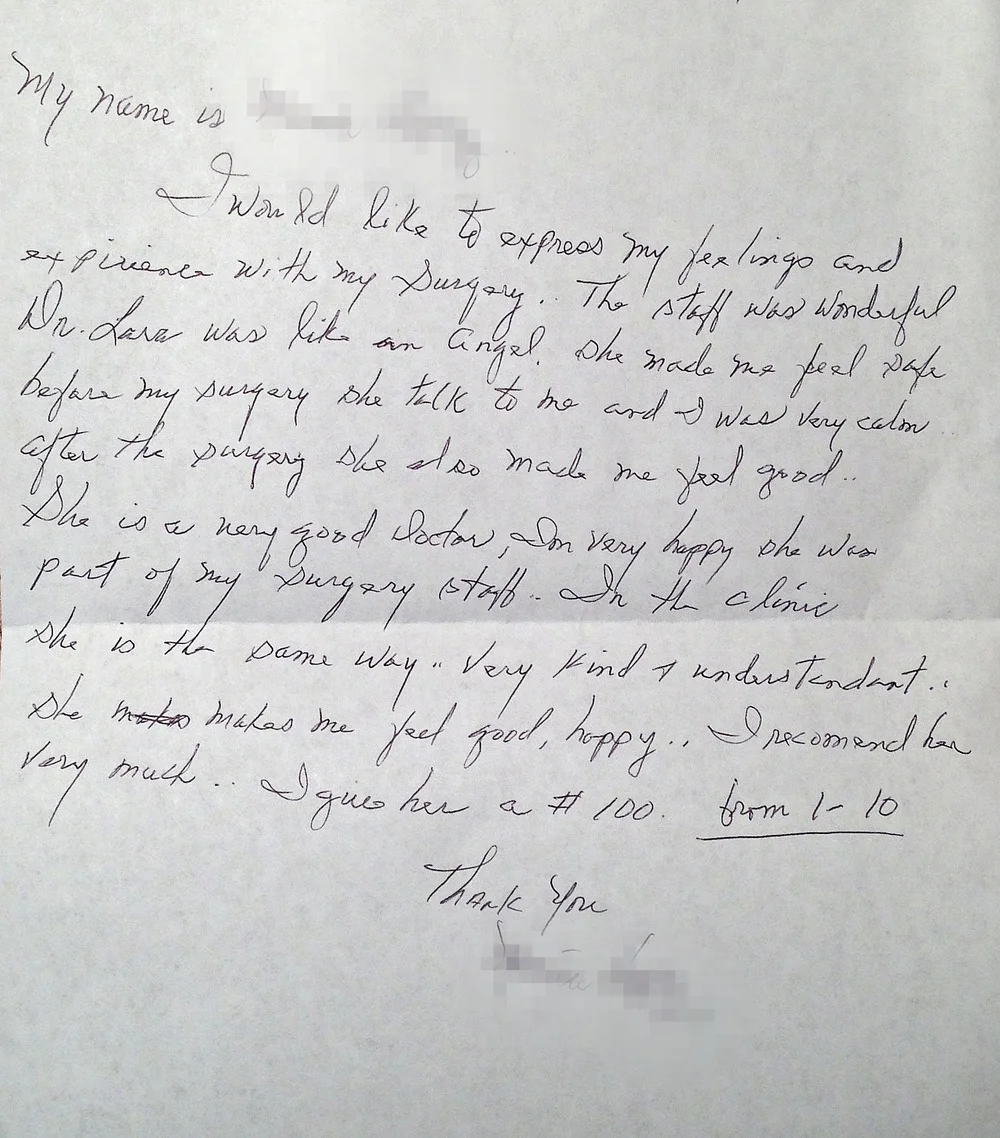 My name is
I would like to express my feelings and
expirience with my Surgery.. The staff was wonderful
Dr. Lara was like an Angel. she made me feel safe
before my surgery she talk to me and I was very calm..
after the surgery she also made me feel good..
She is a very good Doctor, Im very happy she was
part of my surgery staff.. In the clinic
she is the same way.. Very Kind & understandant..
she makes makes me feel good, happy.. I recomend her
very much.. I give her a # 100. from 1-10
Thank You